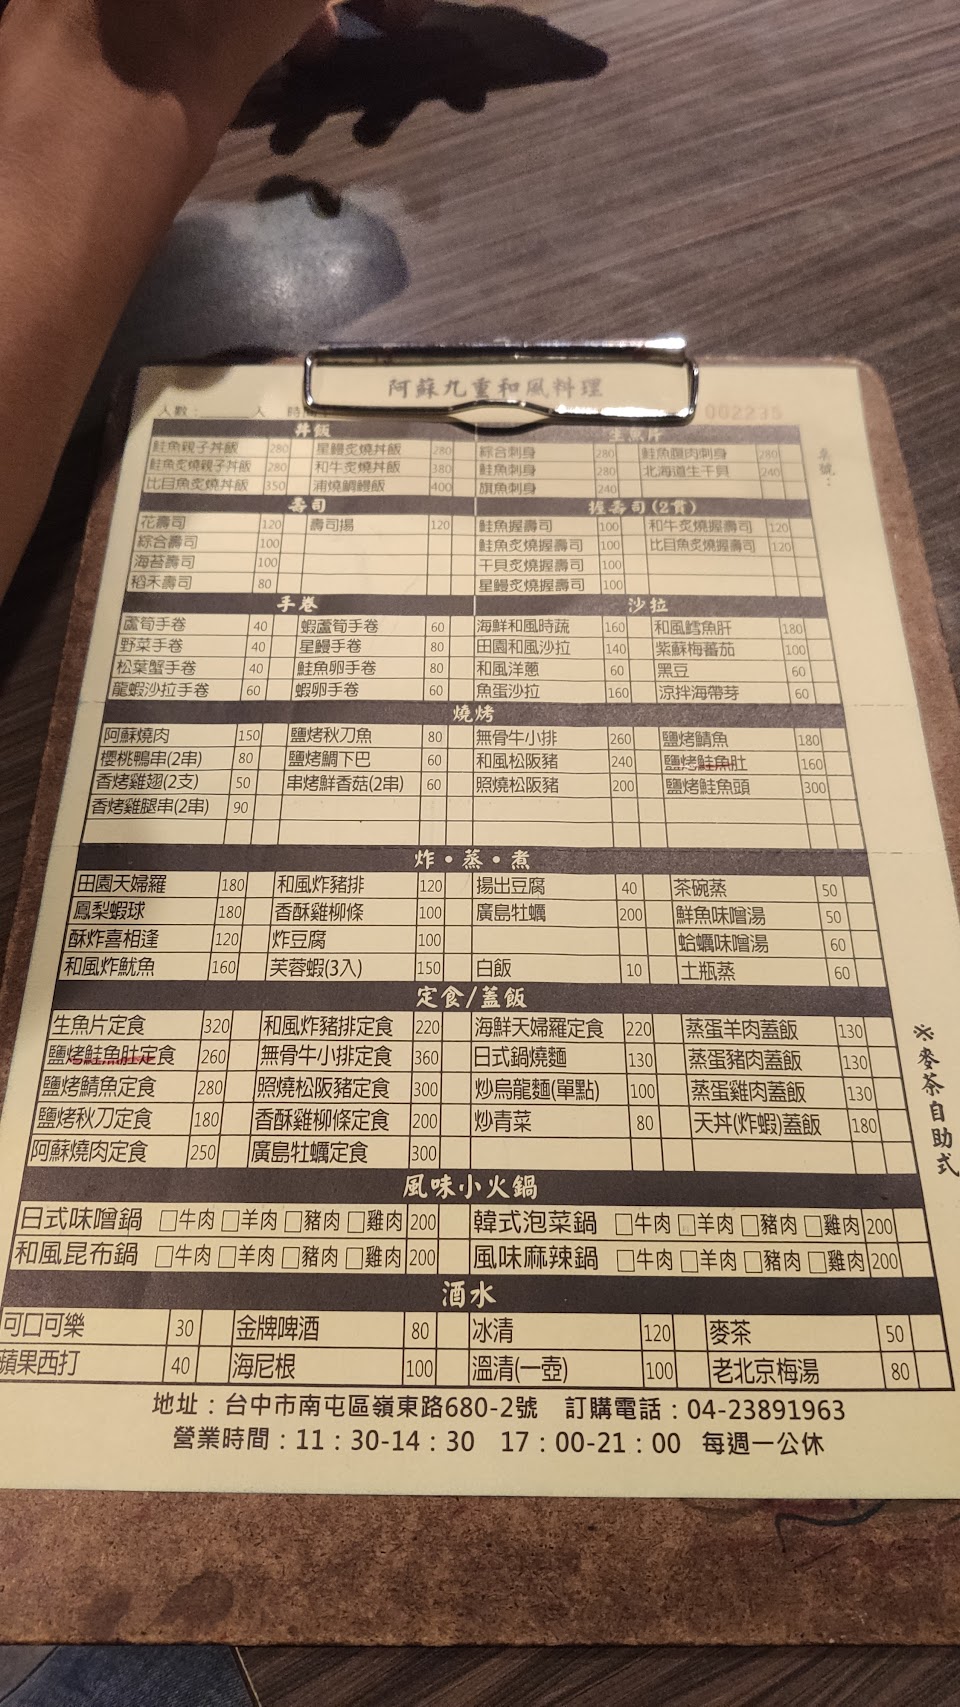 阿蘇九重和風料理
人數：______人 時間 002235
桌號：
丼飯 生魚片
鮭魚親子丼飯 280 星鰻炙燒丼飯 280 綜合刺身 280 鮭魚腹肉刺身 280
鮭魚炙燒親子丼飯 280 和牛炙燒丼飯 380 鮭魚刺身 280 北海道生干貝 240
比目魚炙燒丼飯 350 浦燒鯛鰻飯 400 旗魚刺身 240
壽司 握壽司(2貫)
花壽司 120 壽司揚 120 鮭魚握壽司 100 和牛炙燒握壽司 120
綜合壽司 100 鮭魚炙燒握壽司 100 比目魚炙燒握壽司 120
海苔壽司 100 干貝炙燒握壽司 100
稻禾壽司 80 星鰻炙燒握壽司 100
手卷 沙拉
蘆筍手卷 40 蝦蘆筍手卷 60 海鮮和風時蔬 160 和風鱈魚肝 180
野菜手卷 40 星鰻手卷 80 田園和風沙拉 140 紫蘇梅蕃茄 100
松葉蟹手卷 40 鮭魚卵手卷 80 和風洋蔥 60 黑豆 60
龍蝦沙拉手卷 60 蝦卵手卷 60 魚蛋沙拉 160 涼拌海帶芽 60
燒烤
阿蘇燒肉 150 鹽烤秋刀魚 80 無骨牛小排 260 鹽烤鯖魚 180
櫻桃鴨串(2串) 80 鹽烤鯛下巴 60 和風松阪豬 240 鹽烤鮭魚肚 160
香烤雞翅(2支) 50 串烤鮮香菇(2串) 60 照燒松阪豬 200 鹽烤鮭魚頭 300
香烤雞腿串(2串) 90
炸・蒸・煮
田園天婦羅 180 和風炸豬排 120 揚出豆腐 40 茶碗蒸 50
鳳梨蝦球 180 香酥雞柳條 100 廣島牡蠣 200 鮮魚味噌湯 50
酥炸喜相逢 120 炸豆腐 100 蛤蠣味噌湯 60
和風炸魷魚 160 芙蓉蝦(3入) 150 白飯 10 土瓶蒸 60
定食/蓋飯
生魚片定食 320 和風炸豬排定食 220 海鮮天婦羅定食 220 蒸蛋羊肉蓋飯 130
鹽烤鮭魚肚定食 260 無骨牛小排定食 360 日式鍋燒麵 130 蒸蛋豬肉蓋飯 130
鹽烤鯖魚定食 280 照燒松阪豬定食 300 炒烏龍麵(單點) 100 蒸蛋雞肉蓋飯 130
鹽烤秋刀定食 180 香酥雞柳條定食 200 炒青菜 80 天丼(炸蝦)蓋飯 180
阿蘇燒肉定食 250 廣島牡蠣定食 300
※麥茶自助式
風味小火鍋
日式味噌鍋 □牛肉 □羊肉 □豬肉 □雞肉 200 韓式泡菜鍋 □牛肉 □羊肉 □豬肉 □雞肉 200
和風昆布鍋 □牛肉 □羊肉 □豬肉 □雞肉 200 風味麻辣鍋 □牛肉 □羊肉 □豬肉 □雞肉 200
酒水
可口可樂 30 金牌啤酒 80 冰清 120 麥茶 50
蘋果西打 40 海尼根 100 溫清(一壺) 100 老北京梅湯 80
地址：台中市南屯區嶺東路680-2號 訂購電話：04-23891963
營業時間：11：30-14：30 17：00-21：00 每週一公休